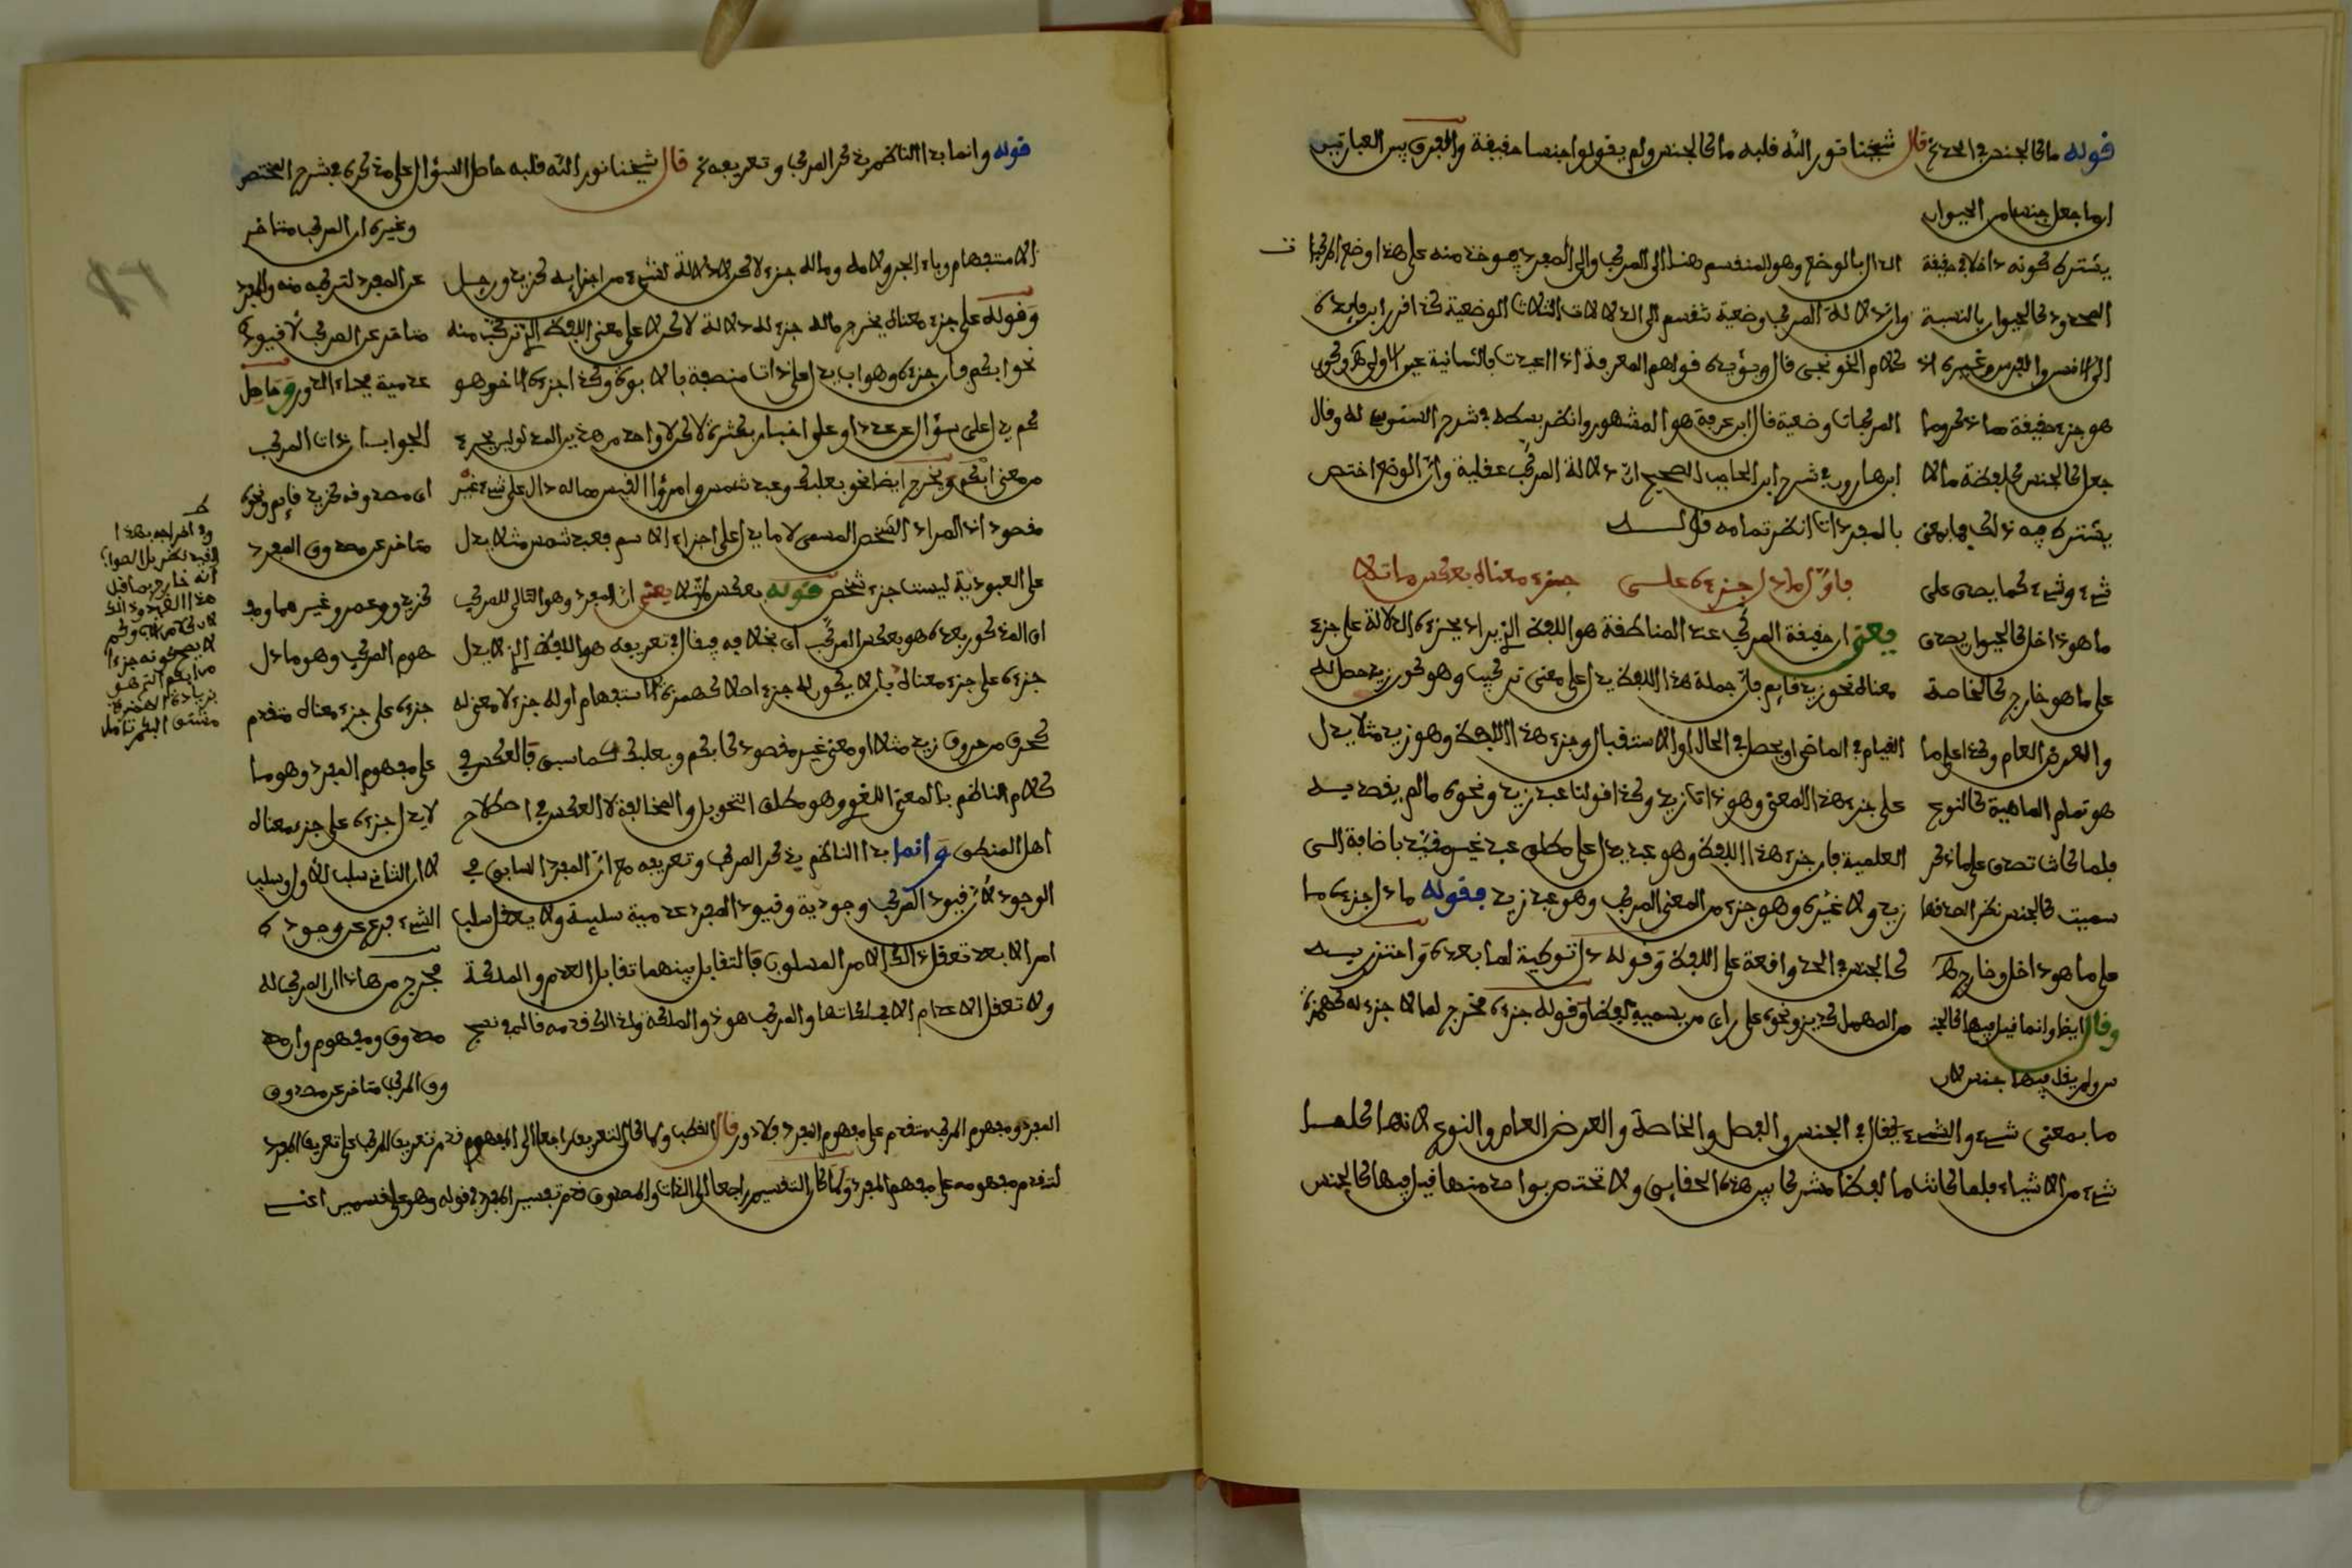 قوله ما كالجنس في الحد الخ قال شيخنا نور الله قلبه ما كالجنس ولم يقولوا جنسا حقيقة والفرق بين العبارتين
ان ما جعل جنسا من الحيوان
يشترك كونه داخلا في حقيقة
المحدود كالحيوان بالنسبة
الى الانسان والفرس وغيره اذ
هو جزء حقيقة مما ذكر وما
جعل كالجنس كلفظة ما لا
يشترك فيه ذلك فما بمعنى
شيء وشيء كما يصدق على
ما هو داخل كالحيوان يصدق
على ما هو خارج كالخاصة
والعرض العام وكذا على ما
هو تمام الماهية كالنوع
فلما كانت تصدق على ما ذكر
سميت كالجنس نظر الصدقها
على ما هو داخل وخارج
وقال ايضا وانما قيل فيها كالجنـ
ـس ولم يقل فيها جنس لان
الدال بالوضع وهو المنقسم هنا الى المركب والى المفرد فهو خذ منه على هذا وضع المركبات
وان دلالة المركب وضعية تنقسم الى الدلالات الثلاث الوضعية كذا قرر ابن فايدة
كلام الخونجي قال ويؤيده قولهم المعرفة اذا اعيدت بالثانية عين الاولى وكون
المركبات وضعية قال ابن عرفة هو المشهور وانظر بسطه في شرح السنوسي له وقال
ابن هارون في شرح ابن الحاجب الصحيح ان دلالة المركب عقلية وان الوضع اختص
بالمفردات انظر تمامه قولـــه
فاول ما دل جزءه على جزء معناه بعكس ما تلا
يعني ان حقيقة المركب عند المناطقة هو اللفظ الذي يراد بجزءه الدلالة على جزء
معناه نحو زيد قايم فان جملة هذا اللفظ يدل على معنى تركيب وهو كون زيد حصل له
القيام في الماضي او يحصل في الحال او الاستقبال وجزء هذا اللفظ وهو زيد مثلا يدل
على جزء هذا المعنى وهو ذات زيد وكذا قولنا عبد زيد ونحوه ما لم يقصد به
العلمية فان جزء هذا اللفظ وهو عبد يدل على مطلق عبد غير مقيد باضافة الى
زيد ولا غيره وهو جزء من المعنى المركب وهو عبد زيد فقوله ما دل جزءه ما
كالجنس في الحد واقعة على اللفظ وقوله دل توطية لما بعده واحترز به
من المهمل كديز ونحوه على راي من يسميه لفظا وقوله جزءه مخرج لما لا جزء له كهمزة
ما بمعنى شيء والشيء يقال في الجنس والفصل والخاصة والعرض العام والنوع لانها كلها
شيء من الاشياء فلما كانت ما لفظا مشتركا بين هذه الحقايق ولا تختص بواحد منها قيل فيها كالجنس
قوله وانما بدا الناظم بذكر المركب وتعريفه الخ قال شيخنا نور الله قلبه حاصل السؤال على ما ذكره في شرح المختصر
وغيره ان المركب متاخر
عن المفرد لتركبه منه والمفرد
متاخر عن المركب لان قيوده
عدمية فجاء الدور وحاصل
الجواب ان ذات المركب
اى مصدوقه كزيد قايم ونحوه
متاخر عن مصدوق المفرد
كزيد وعمرو وغيرهما ومفـ
ـهوم المركب وهو ما دل
جزءه على جزء معناه متقدم
على مفهوم المفرد وهو ما
لا يدل جزءه على جزء معناه
لان الثاني سلب الاول وسلب
الشيء فرع عن وجوده
فخرج من هذا ان المركب له
مصدوق ومفهوم وان مصد
وق المركب متاخر عن مصدوق
الاستفهام وباء الجر ولامه وما له جزء لاكن لا دلالة لشيء من اجزايه كزيد ورجل
وقوله على جزء معناه يخرج ما له جزء له دلالة لاكن لا على معنى اللفظ الذي تركب منه
نحو ابكم فان جزءه وهو اب يدل على ذات متصفة بالابوة وكذا جزءه الاخر وهو
كم يدل على سؤال عن عدد او على اخبار بكثرة لاكن لا واحد من هذين المدلولين جزء
من معنى ابكم ويخرج ايضا نحو بعلبك وعبد شمس وامرؤا القيس مما له دال على شيء غير
مقصود اذ المراد الشخص المسمى لا ما يدل على اجزاء الاسم فعبد شمس مثلا يدل
على العبودية ليست جزء شخص قوله بعكس ما تلا يعني ان المفرد وهو التالي للمركب
اى المذكور بعده هو بعكس المركب اى بخلافه فيقال في تعريفه هو اللفظ الذي لا يدل
جزءه على جزء معناه بان لا يكون له جزء اصلا كهمزة الاستفهام او له جزء لا معنى له
كحرف من حروف زيد مثلا او معنى غير مقصود كابكم وبعلبك كما سبق فالعكس في
كلام الناظم بالمعنى اللغوي وهو مطلق التحويل والمخالفة لا العكس في اصطلاح
اهل المنطق وانما بدا الناظم بذكر المركب وتعريفه مع ان المفرد السابق في
الوجود لان قيود المركب وجودية وقيود المفرد عدمية سلبية ولا يعقل سلب
امر الا بعد تعقل ذلك الامر المسلوب فالتقابل بينهما تقابل العدم والملكة
ولا تعقل الاعدام الا بملكاتها والمركب هو ذو الملكة ولذلك قدمه
المفرد ومفهوم المركب متقدم على مفهوم المفرد فلا دور قال القطب ولما كان التعريف راجعا الى المفهوم قدم تعريف المركب على تعريف المفرد
لتقدم مفهومه على مفهوم المفرد ولما كان التقسيم راجعا الى الذات والمصدوق قدم تقسيم المفرد في قوله وهو على قسمين اعني